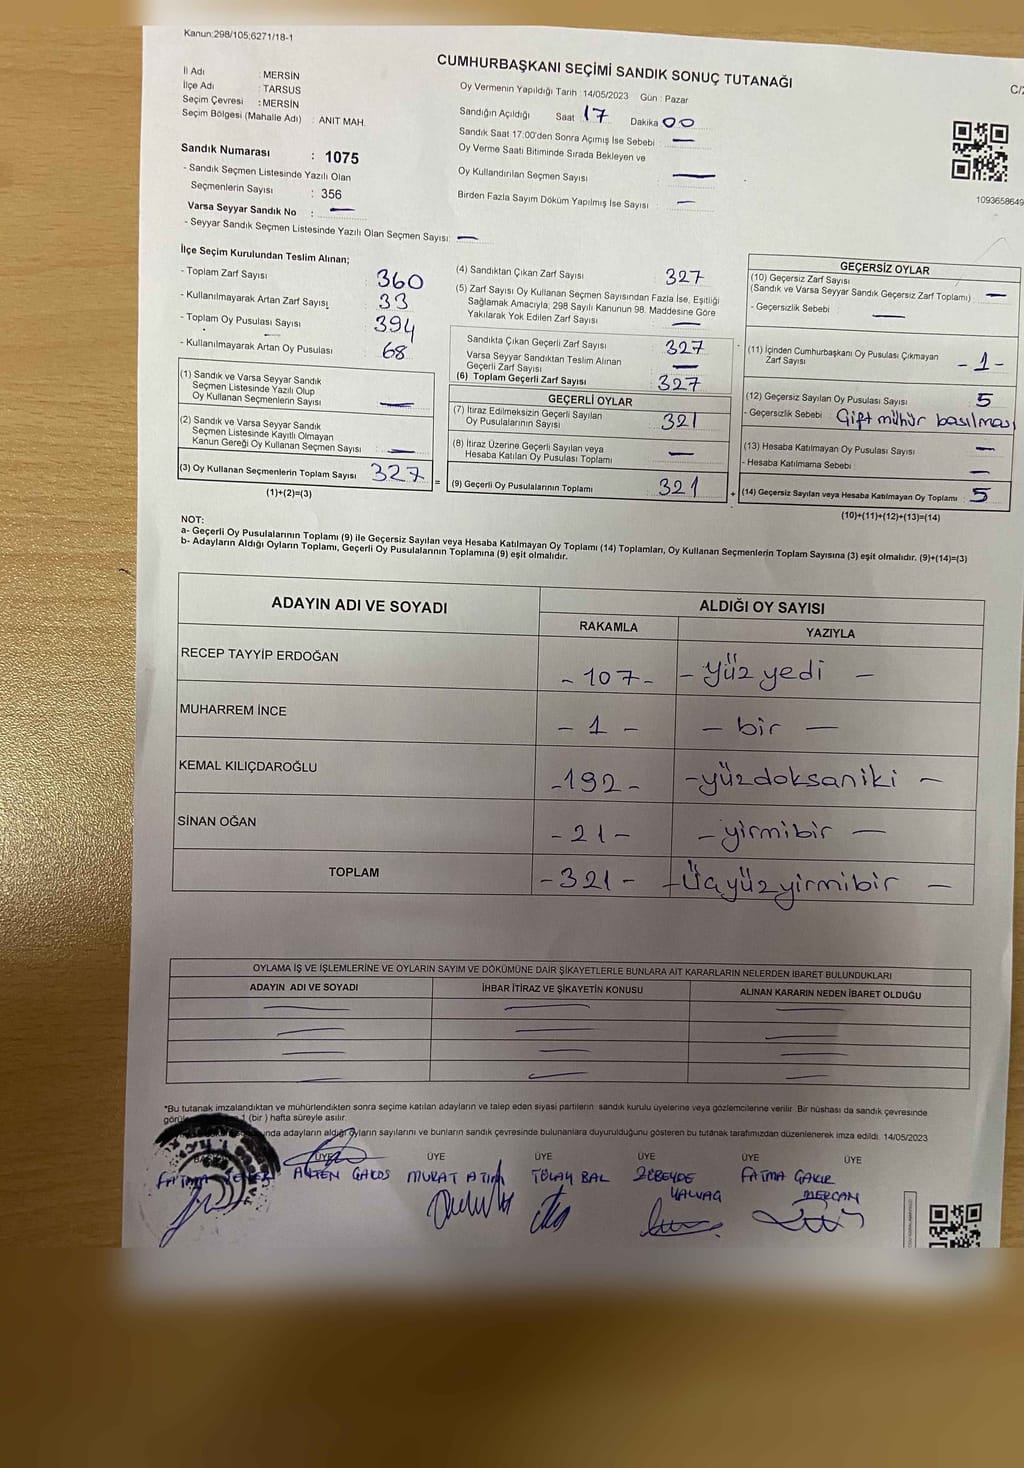 Kanun:298/105;6271/18-1
CUMHURBAŞKANI SEÇİMİ SANDIK SONUÇ TUTANAĞI
C/2
İl Adı : MERSİN
İlçe Adı : TARSUS
Seçim Çevresi : MERSİN
Seçim Bölgesi (Mahalle Adı) : ANIT MAH.
Sandık Numarası : 1075
- Sandık Seçmen Listesinde Yazılı Olan
Seçmenlerin Sayısı : 356
Varsa Seyyar Sandık No : —
- Seyyar Sandık Seçmen Listesinde Yazılı Olan Seçmen Sayısı: —
Oy Vermenin Yapıldığı Tarih : 14/05/2023 Gün : Pazar
Sandığın Açıldığı Saat 17 Dakika 00
Sandık Saat 17.00'den Sonra Açımış İse Sebebi : —
Oy Verme Saati Bitiminde Sırada Bekleyen ve
Oy Kullandırılan Seçmen Sayısı —
Birden Fazla Sayım Döküm Yapılmış İse Sayısı : —
1093658649
İlçe Seçim Kurulundan Teslim Alınan;
- Toplam Zarf Sayısı : 360
- Kullanılmayarak Artan Zarf Sayısı : 33
- Toplam Oy Pusulası Sayısı : 394
- Kullanılmayarak Artan Oy Pusulası : 68
(1) Sandık ve Varsa Seyyar Sandık
Seçmen Listesinde Yazılı Olup
Oy Kullanan Seçmenlerin Sayısı : —
(2) Sandık ve Varsa Seyyar Sandık
Seçmen Listesinde Kayıtlı Olmayan
Kanun Gereği Oy Kullanan Seçmen Sayısı : —
(3) Oy Kullanan Seçmenlerin Toplam Sayısı : 327
(1)+(2)=(3)
(4) Sandıktan Çıkan Zarf Sayısı : 327
(5) Zarf Sayısı Oy Kullanan Seçmen Sayısından Fazla İse, Eşitliği
Sağlamak Amacıyla; 298 Sayılı Kanunun 98. Maddesine Göre
Yakılarak Yok Edilen Zarf Sayısı : —
Sandıkta Çıkan Geçerli Zarf Sayısı : 327
Varsa Seyyar Sandıktan Teslim Alınan
Geçerli Zarf Sayısı : —
(6) Toplam Geçerli Zarf Sayısı : 327
=
GEÇERLİ OYLAR
(7) İtiraz Edilmeksizin Geçerli Sayılan
Oy Pusulalarının Sayısı : 321
(8) İtiraz Üzerine Geçerli Sayılan veya
Hesaba Katılan Oy Pusulası Toplamı : —
(9) Geçerli Oy Pusulalarının Toplamı : 321
+
GEÇERSİZ OYLAR
(10) Geçersiz Zarf Sayısı
(Sandık ve Varsa Seyyar Sandık Geçersiz Zarf Toplamı) : —
- Geçersizlik Sebebi : —
(11) İçinden Cumhurbaşkanı Oy Pusulası Çıkmayan
Zarf Sayısı : -1-
(12) Geçersiz Sayılan Oy Pusulası Sayısı : 5
- Geçersizlik Sebebi : Çift mühür basılması
(13) Hesaba Katılmayan Oy Pusulası Sayısı : —
- Hesaba Katılmama Sebebi : —
(14) Geçersiz Sayılan veya Hesaba Katılmayan Oy Toplamı : 5
(10)+(11)+(12)+(13)=(14)
NOT:
a- Geçerli Oy Pusulalarının Toplamı (9) ile Geçersiz Sayılan veya Hesaba Katılmayan Oy Toplamı (14) Toplamları, Oy Kullanan Seçmenlerin Toplam Sayısına (3) eşit olmalıdır. (9)+(14)=(3)
b- Adayların Aldığı Oyların Toplamı, Geçerli Oy Pusulalarının Toplamına (9) eşit olmalıdır.
ADAYIN ADI VE SOYADI ALDIĞI OY SAYISI
RAKAMLA YAZIYLA
RECEP TAYYİP ERDOĞAN - 107 - - yüz yedi -
MUHARREM İNCE - 1 - - bir -
KEMAL KILIÇDAROĞLU - 192 - - yüzdoksaniki -
SİNAN OĞAN - 21 - - yirmibir -
TOPLAM - 321 - - Üçyüzyirmibir -
OYLAMA İŞ VE İŞLEMLERİNE VE OYLARIN SAYIM VE DÖKÜMÜNE DAİR ŞİKAYETLERLE BUNLARA AİT KARARLARIN NELERDEN İBARET BULUNDUKLARI
ADAYIN ADI VE SOYADI İHBAR İTİRAZ VE ŞİKAYETİN KONUSU ALINAN KARARIN NEDEN İBARET OLDUĞU
*Bu tutanak imzalandıktan ve mühürlendikten sonra seçime katılan adayların ve talep eden siyasi partilerin sandık kurulu üyelerine veya gözlemcilerine verilir. Bir nüshası da sandık çevresinde
1 (bir ) hafta süreyle asılır.
adayların aldığı oyların sayılarını ve bunların sandık çevresinde bulunanlara duyurulduğunu gösteren bu tutanak tarafımızdan düzenlenerek imza edildi. 14/05/2023
ÜYE ÜYE ÜYE ÜYE ÜYE ÜYE
FATMA MURAT TÜLAY BAL FATMA ÇAKIR
MERCAN